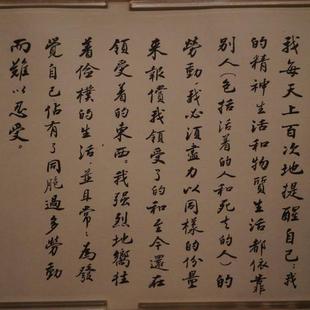 我每天上百次地提醒自己：我
的精神生活和物質生活都依靠
別人（包括活着的人和死去的人）的
勞動，我必須盡力以同樣的份量
来報償我領受了的和至今還在
領受着的東西。我强烈地嚮往
着儉樸的生活，並且常々為發
覺自己佔有了同胞過多勞動
而難以忍受。